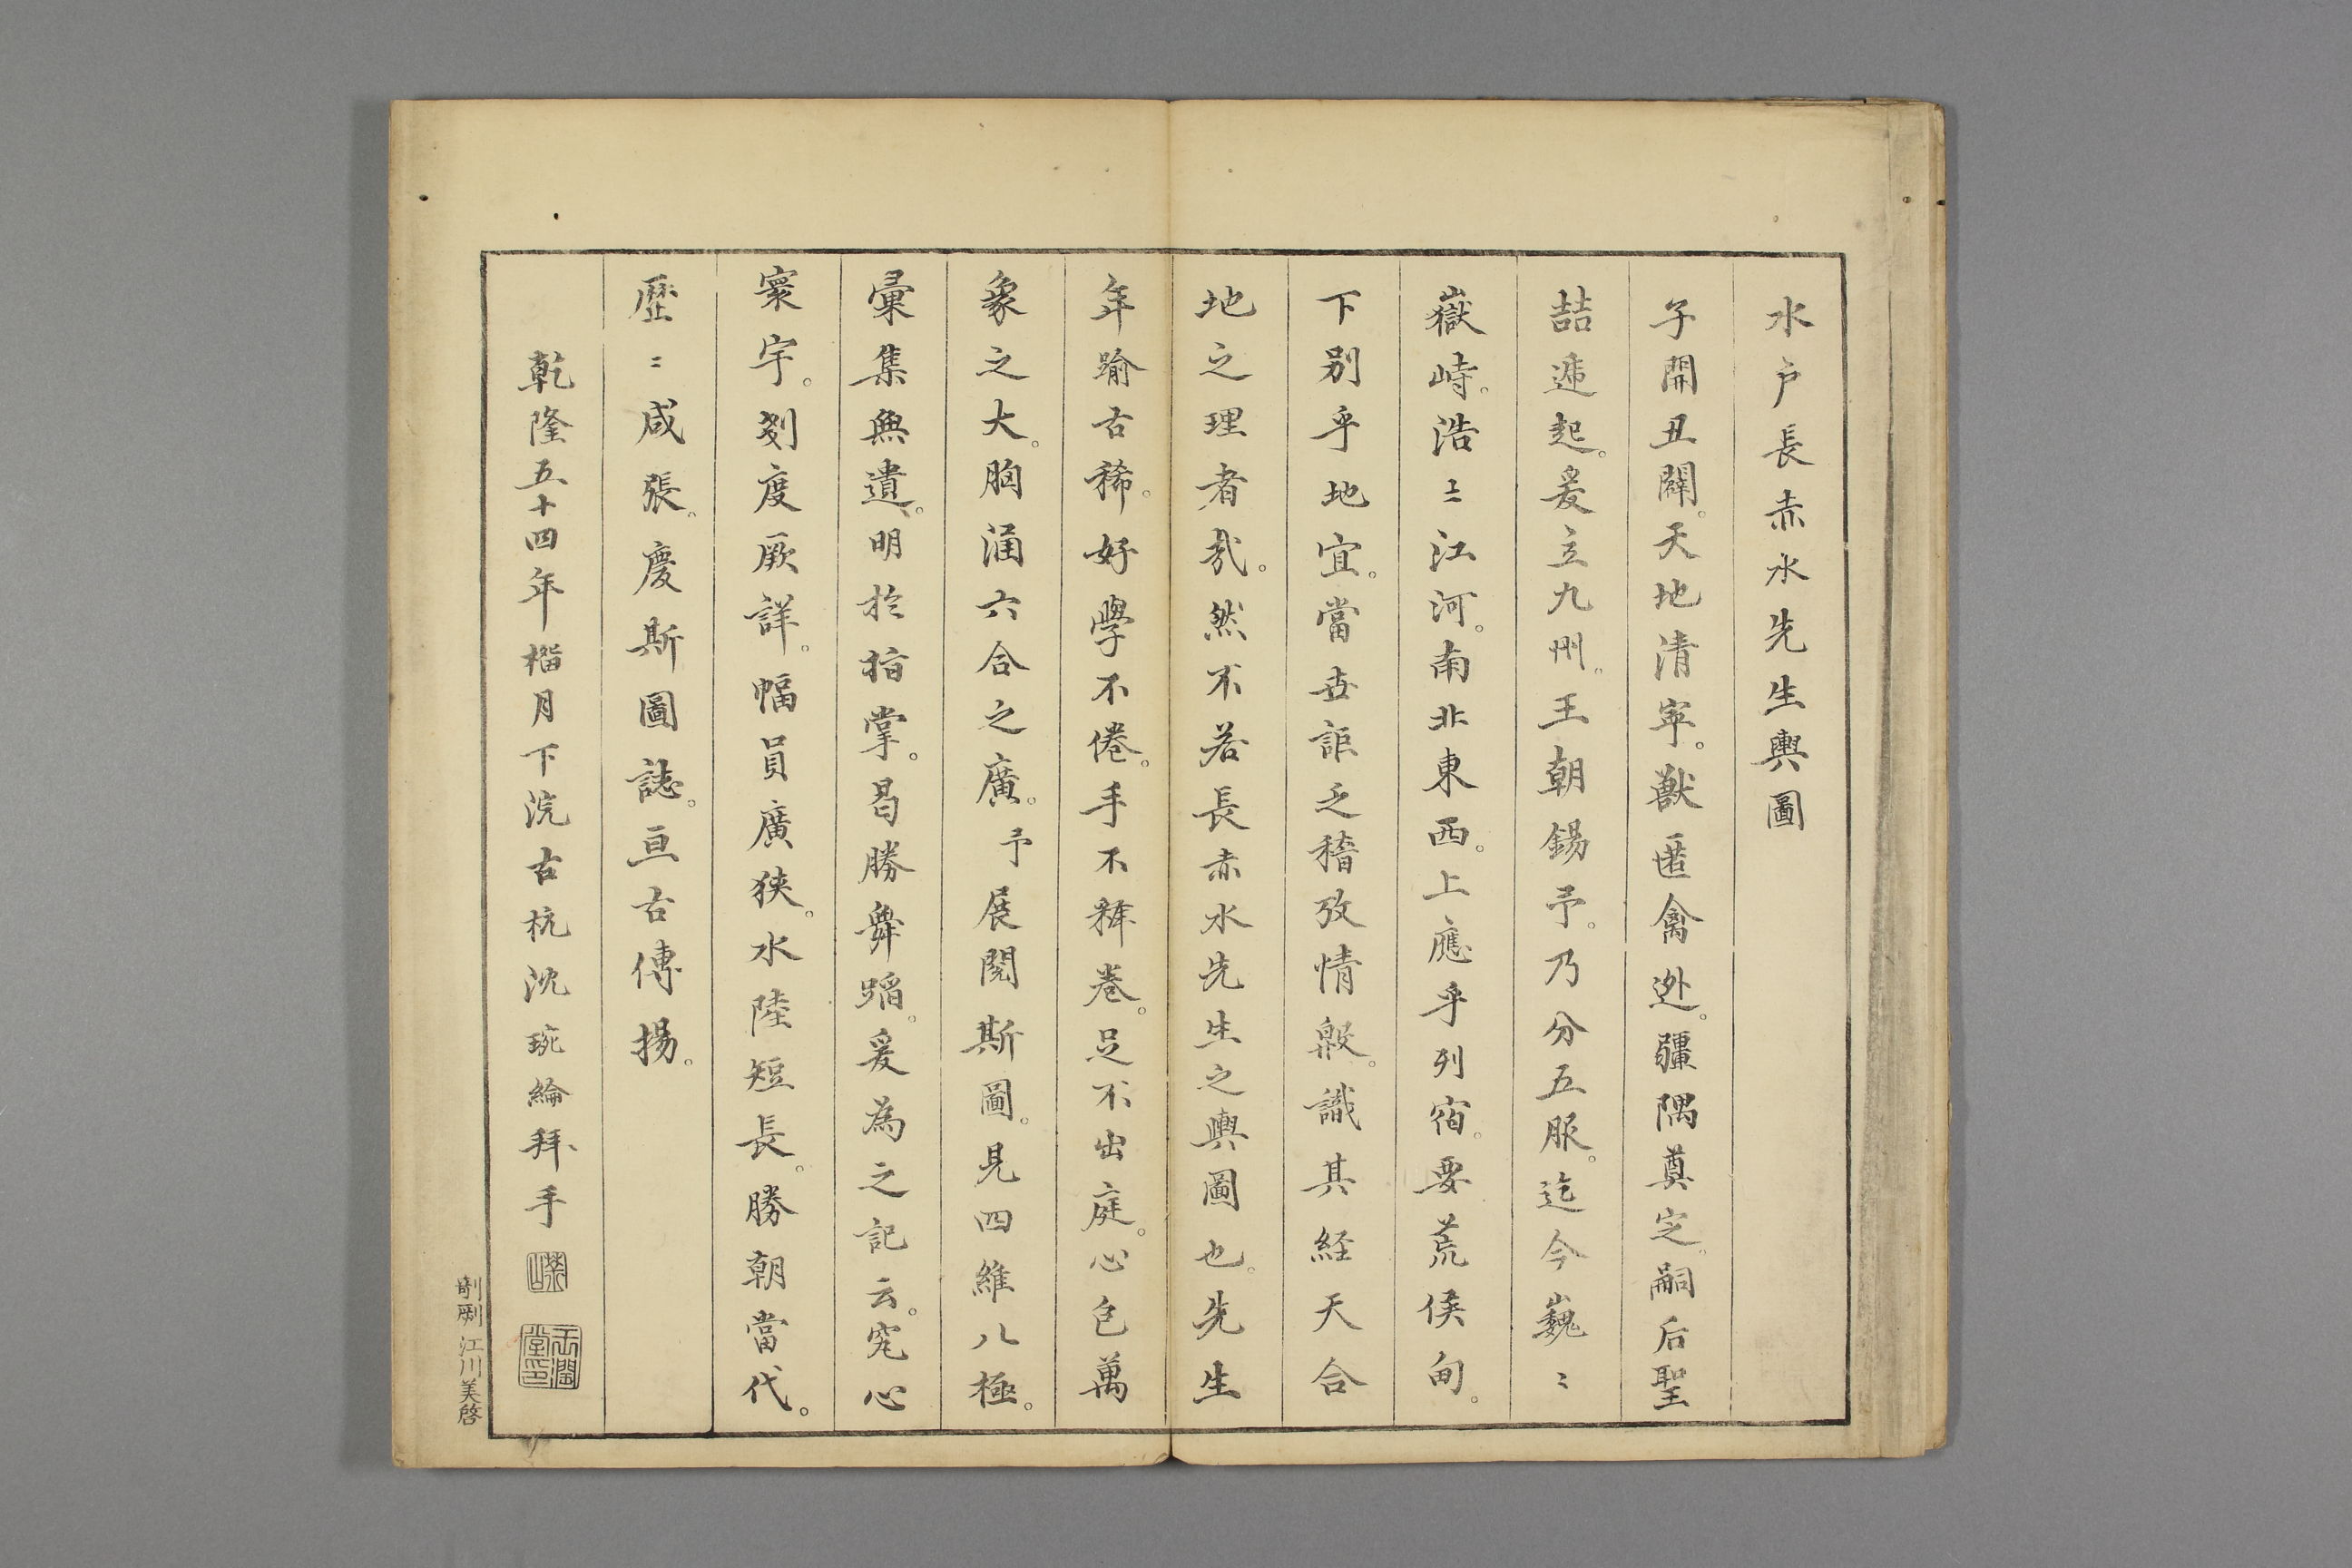 水戸長赤水先生輿圖
子開丑闢。天地清寧。獣匿禽逊。疆隅奠定。嗣后聖
喆遞起。爰立九州。王朝錫予。乃分五服。迄今巍〻
嶽峙。浩〻江河。南北東西。上應乎列宿。要荒侯甸。
下別乎地宜。當世詎乏稽攷情殷。識其経天合
地之理者哉。然不若長赤水先生之輿圖也。先生
年踰古稀。好學不倦。手不釋卷。足不出庭。心包萬
象之大。胸涌六合之廣。予展閱斯圖。見四維八極。
彙集無遺。明於指掌。曷勝舞蹈。爰為之記云。究心
寰宇。剗度厥詳。幅員廣狹。水陸短長。勝朝當代。
歷〻咸張。慶斯圖誌。亘古傳揚。
乾隆五十四年楷月下浣古杭沈琬綸拜手
剞劂 江川美啓